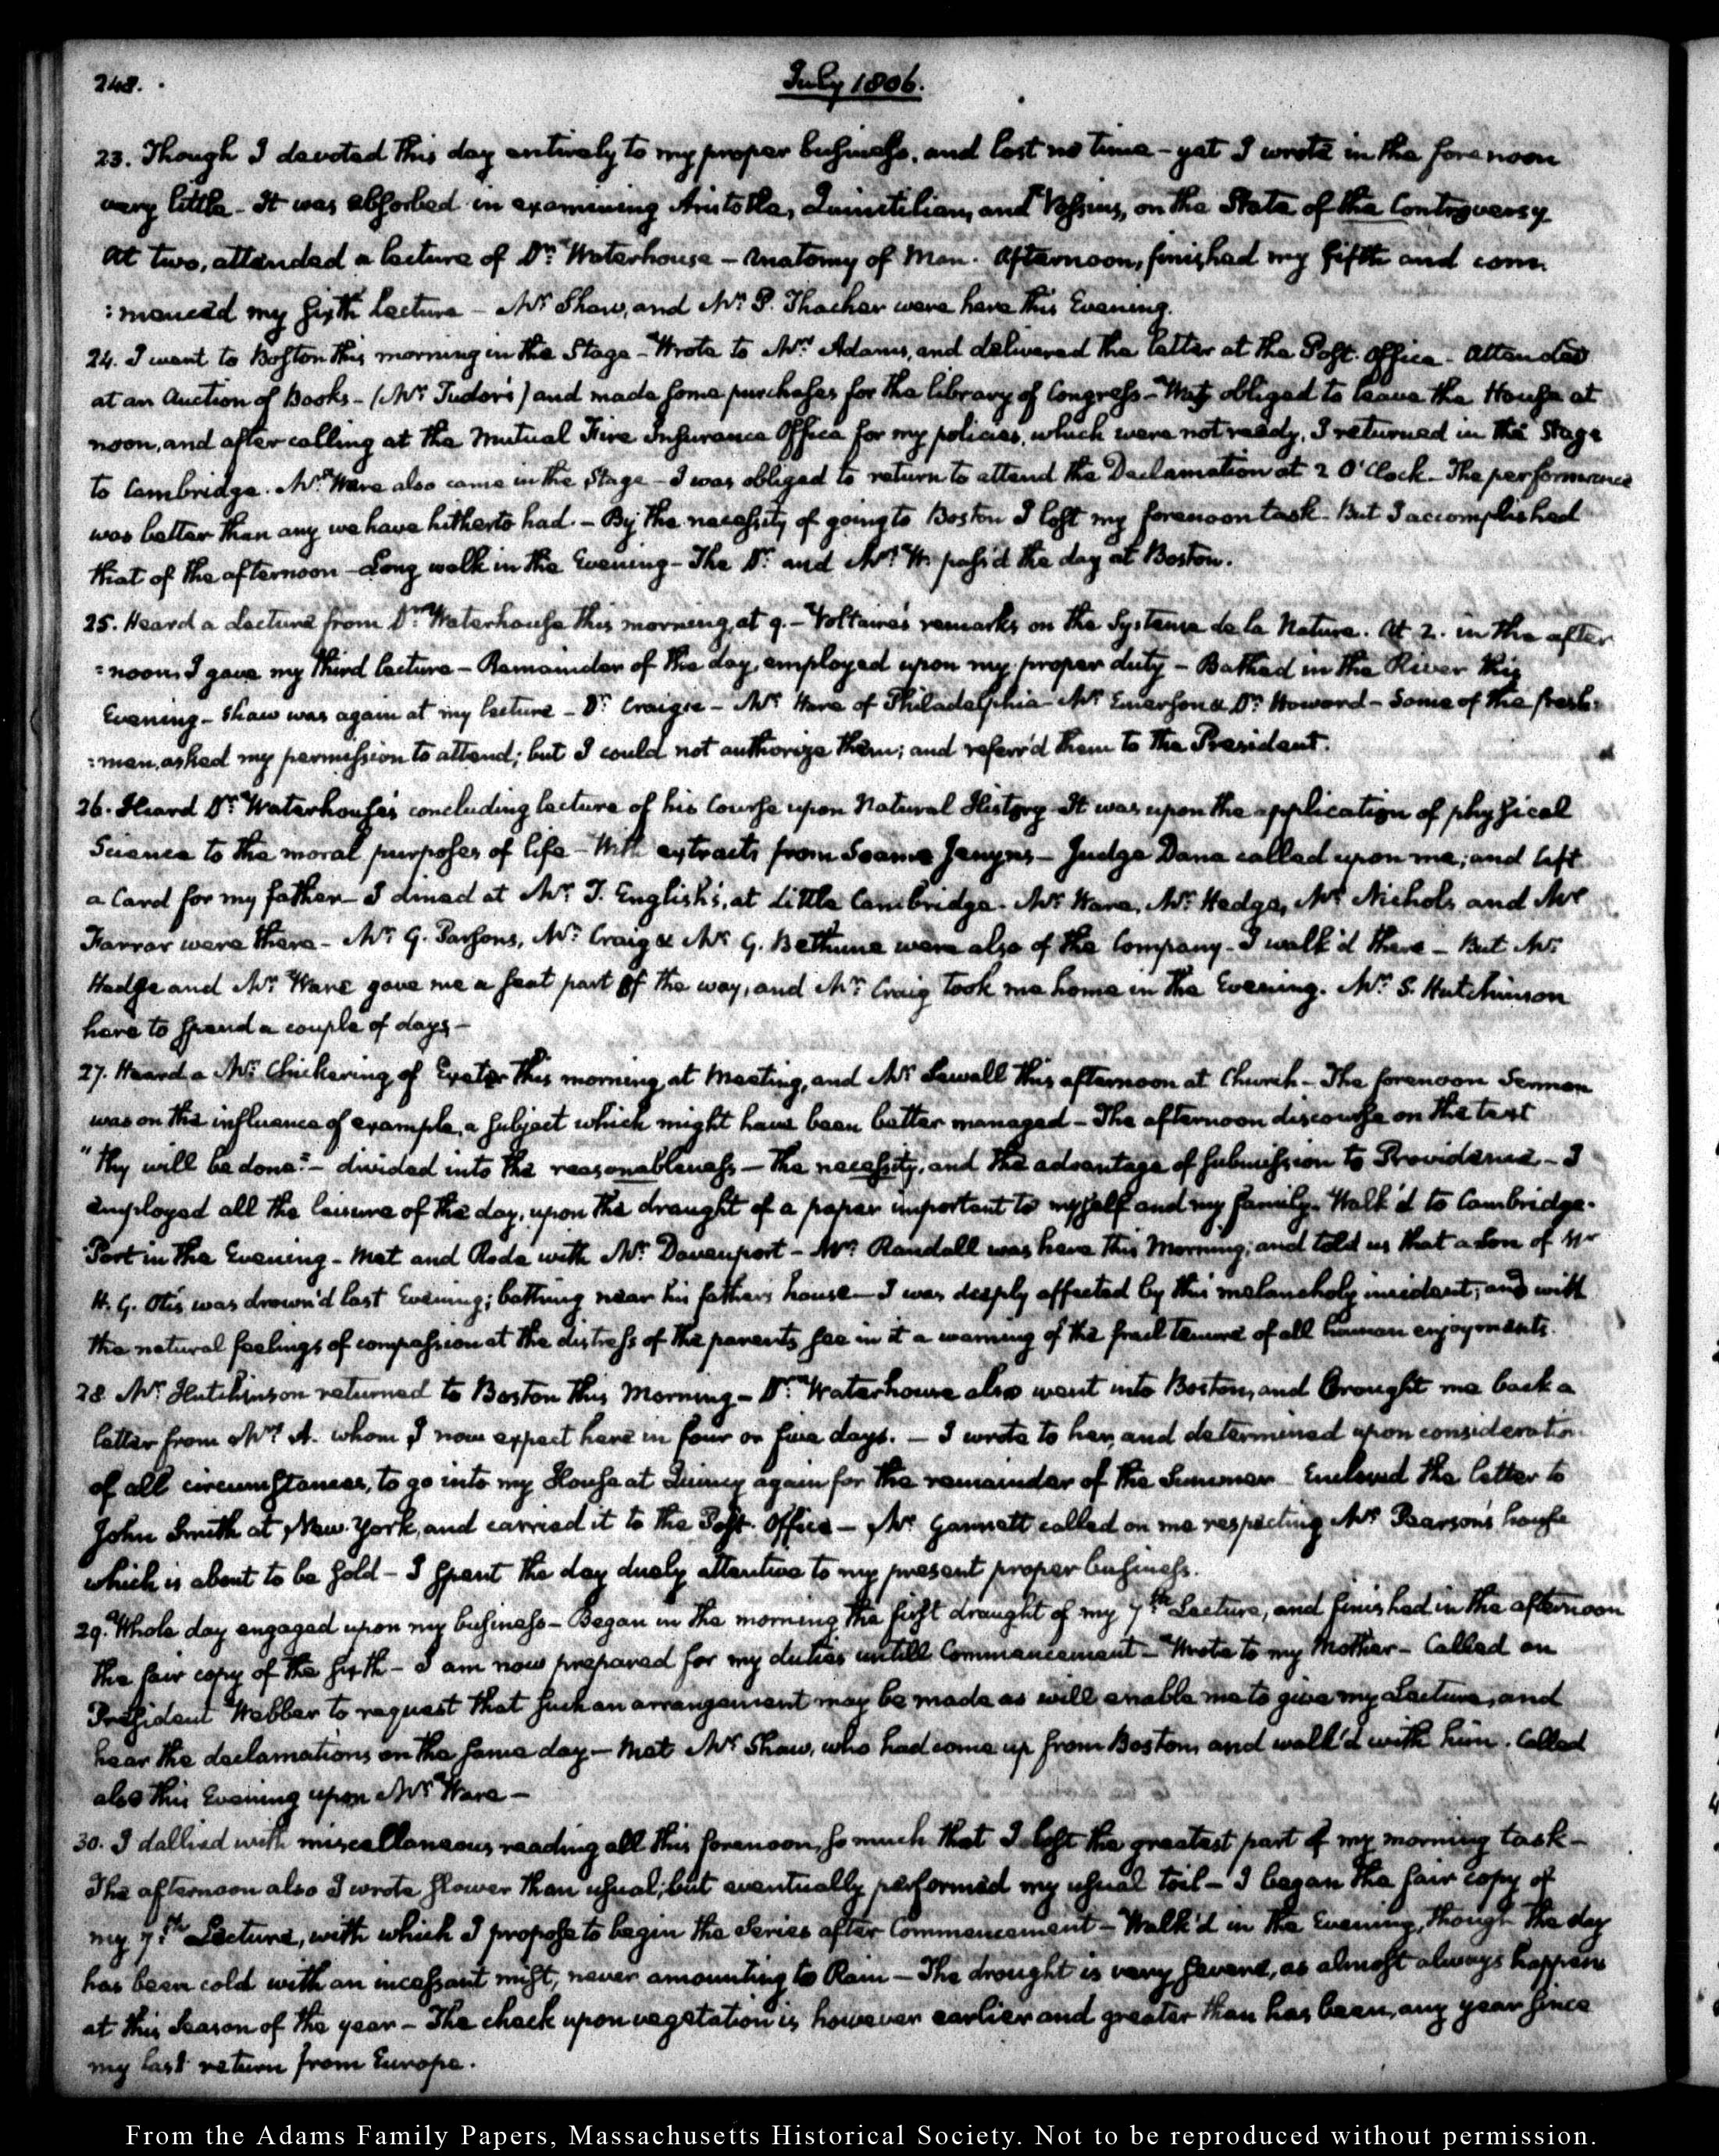 248.
July 1806.
23. Though I devoted this day entirely to my proper business, and lost no time - yet I wrote in the forenoon
very little - It was absorbed in examining Aristotle, Quinctilian, and Vossius, on the State of the Controversy
At two, attended a lecture of Dr. Waterhouse - Anatomy of Man. Afternoon, finished my fifth and com
:menced my sixth Lecture - Mr. Shaw, and Mr. P. Thacher were here this Evening.
24. I went to Boston this morning in the Stage - Wrote to Mrs. Adams, and delivered the letter at the Post-Office - Attended
at an Auction of Books - (Mr. Tudor's) and made some purchases for the library of Congress - Was obliged to leave the House at
noon, and after calling at the Mutual Fire Insurance Office for my policies, which were not ready, I returned in the Stage
to Cambridge. Mr. Ware also came in the Stage - I was obliged to return to attend the Declamation at 2 O'Clock - The performance
was better than any we have hitherto had. - By the necessity of going to Boston I lost my forenoon task - But I accomplished
that of the afternoon - Long walk in the Evening - The Dr. and Mrs. W. pass'd the day at Boston.
25. Heard a Lecture from Dr. Waterhouse this morning, at 9. - Voltaire's remarks on the Systeme de la Nature. At 2. in the after
=noon, I gave my third lecture - Remainder of the day, employed upon my proper duty - Bathed in the River this
Evening - Shaw was again at my lecture - Dr. Craigie - Mr. Hare of Philadelphia - Mr. Emerson & Dr. Howard - Some of the fresh:
:men, asked my permission to attend; but I could not authorize them; and referr'd them to the President.
26. Heard Dr. Waterhouse's concluding lecture of his Course upon Natural History - It was upon the application of physical
Science to the moral purposes of life - With extracts from Soame Jenyns - Judge Dana called upon me; and left
a Card for my father - I dined at Mr. T. English's, at Little Cambridge. Mr. Ware, Mr. Hedge, Mr. Nichols, and Mr.
Farrar were there - Mr. G. Parsons, Mr. Craig & Mr. G. Bethune were also of the Company - I walk'd there - But Mr.
Hedge and Mr. Ware gave me a seat part of the way, and Mr. Craig took me home in the Evening. Mr. S. Hutchinson
here to spend a couple of days -
27. Heard a Mr. Chickering of Exeter this morning, at Meeting, and Mr. Sewall this afternoon at Church - The forenoon Sermon
was on the influence of example, a subject which might have been better managed - The afternoon discourse on the text
"Thy will be done" - divided into the reasonableness - the necessity, and the advantage of submission to Providence - I
employed all the leisure of the day, upon the draught of a paper important to myself and my family. Walk'd to Cambridge-
Port in the Evening - Met and Rode with Mr. Davenport - Mr. Randall was here this Morning; and told us that a Son of Mr
H. G. Otis was drown'd last Evening; bathing near his father's house - I was deeply affected by this melancholy incident; and with
the natural feelings of compassion at the distress of the parents, see in it a warning of the frail tenure of all human enjoyments.
28. Mr. Hutchinson returned to Boston this Morning - Dr. Waterhouse also went into Boston, and brought me back a
letter from Mrs. A. whom I now expect here in four or five days. - I wrote to her, and determined upon consideration
of all circumstances, to go into my House at Quincy again for the remainder of the Summer - Enclosed the letter to
John Smith at New-York, and carried it to the Post-Office - Mr. Gannett called on me respecting Mr. Pearson's house
which is about to be sold - I spent the day duely attentive to my present proper business.
29. Whole day engaged upon my business - Began in the morning the first draught of my 7th. Lecture, and finished in the afternoon
the fair copy of the sixth - I am now prepared for my duties untill Commencement - Wrote to my Mother - Called on
President Webber to request that such an arrangement may be made as will enable me to give my Lecture, and
hear the declamations on the same day - Met Mr. Shaw, who had come up from Boston, and walk'd with him. Called
also this Evening upon Mr. Ware -
30. I dallied with miscellaneous reading all this forenoon, so much that I lost the greatest part of my morning task -
The afternoon also I wrote slower than usual; but eventually performed my usual toil - I began the fair copy of
my 7th. Lecture, with which I propose to begin the Series after Commencement - Walk'd in the Evening, though the day
has been cold with an incessant mist, never amounting to Rain - The drought is very severe, as almost always happens
at this Season of the year - The check upon vegetation is however earlier and greater than has been, any year since
my last return from Europe.
From the Adams Family Papers, Massachusetts Historical Society. Not to be reproduced without permission.